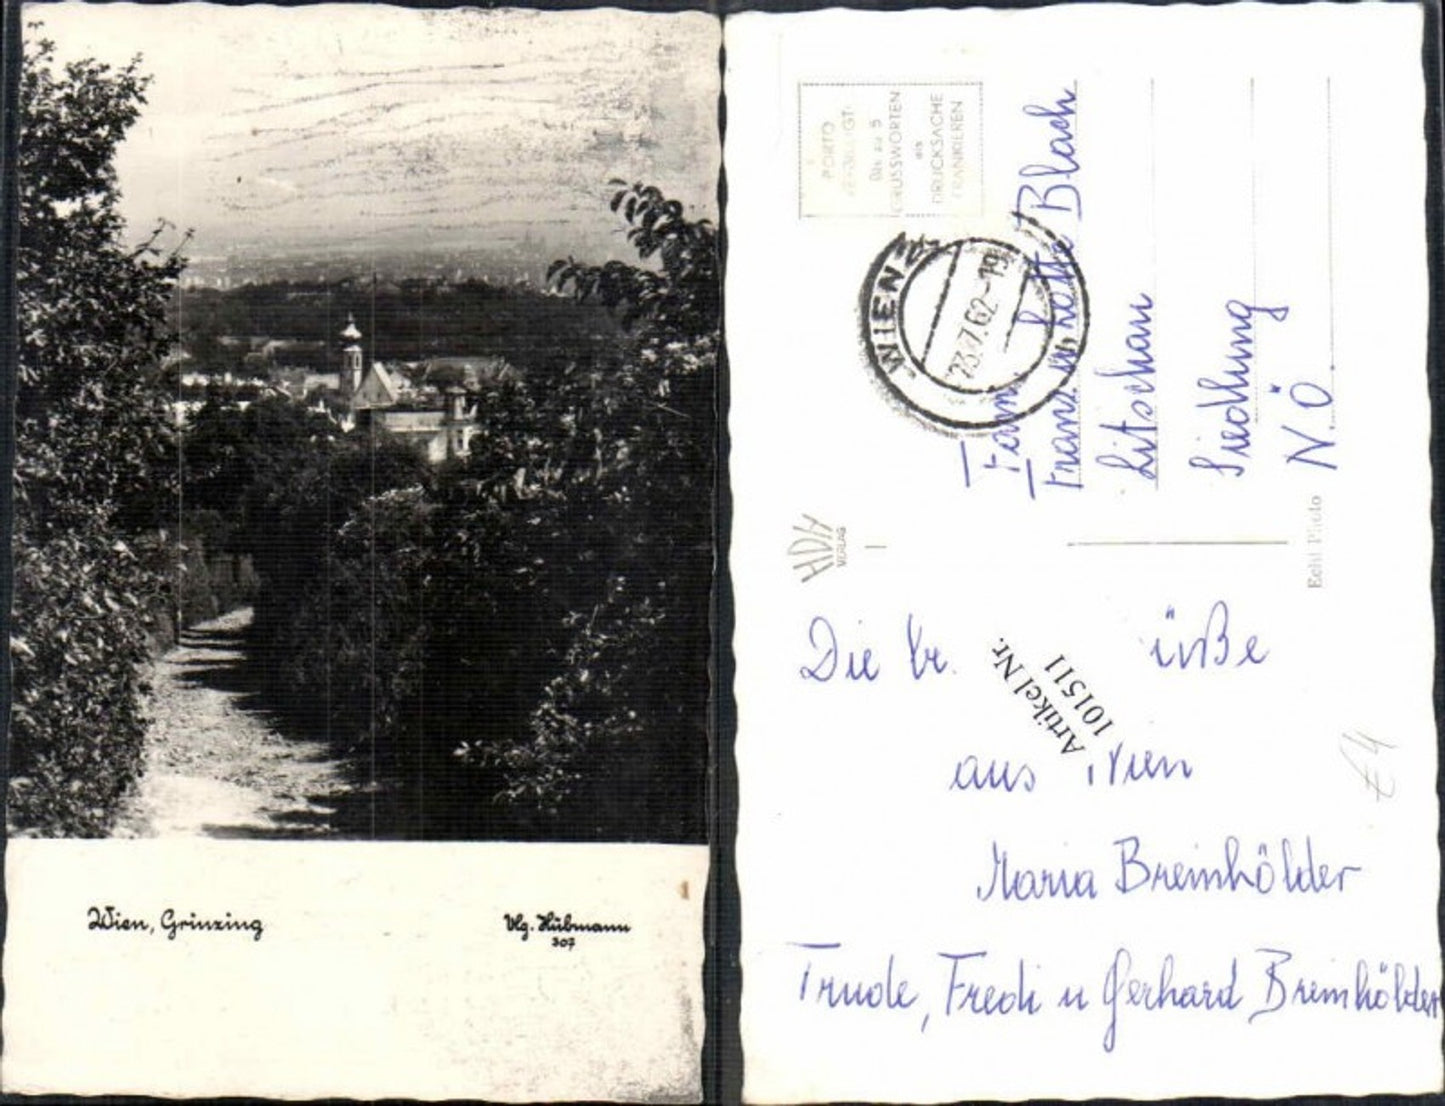 Wien, Grinzing
Vlg. Hübmann
307
PORTO
Bis zu 5
GRUSSWORTEN
als
DRUCKSACHE
FRANKIEREN
WIEN
23.7.62-19
Fam
Franz u
Blach
Litschau
Siedlung
N.Ö
HDH
VERLAG
Echt Photo
Artikel Nr.
101511
Die br. üße
aus Wien
Maria Breinhölder
Trude, Fredi u Gerhard Breinhölder
€4